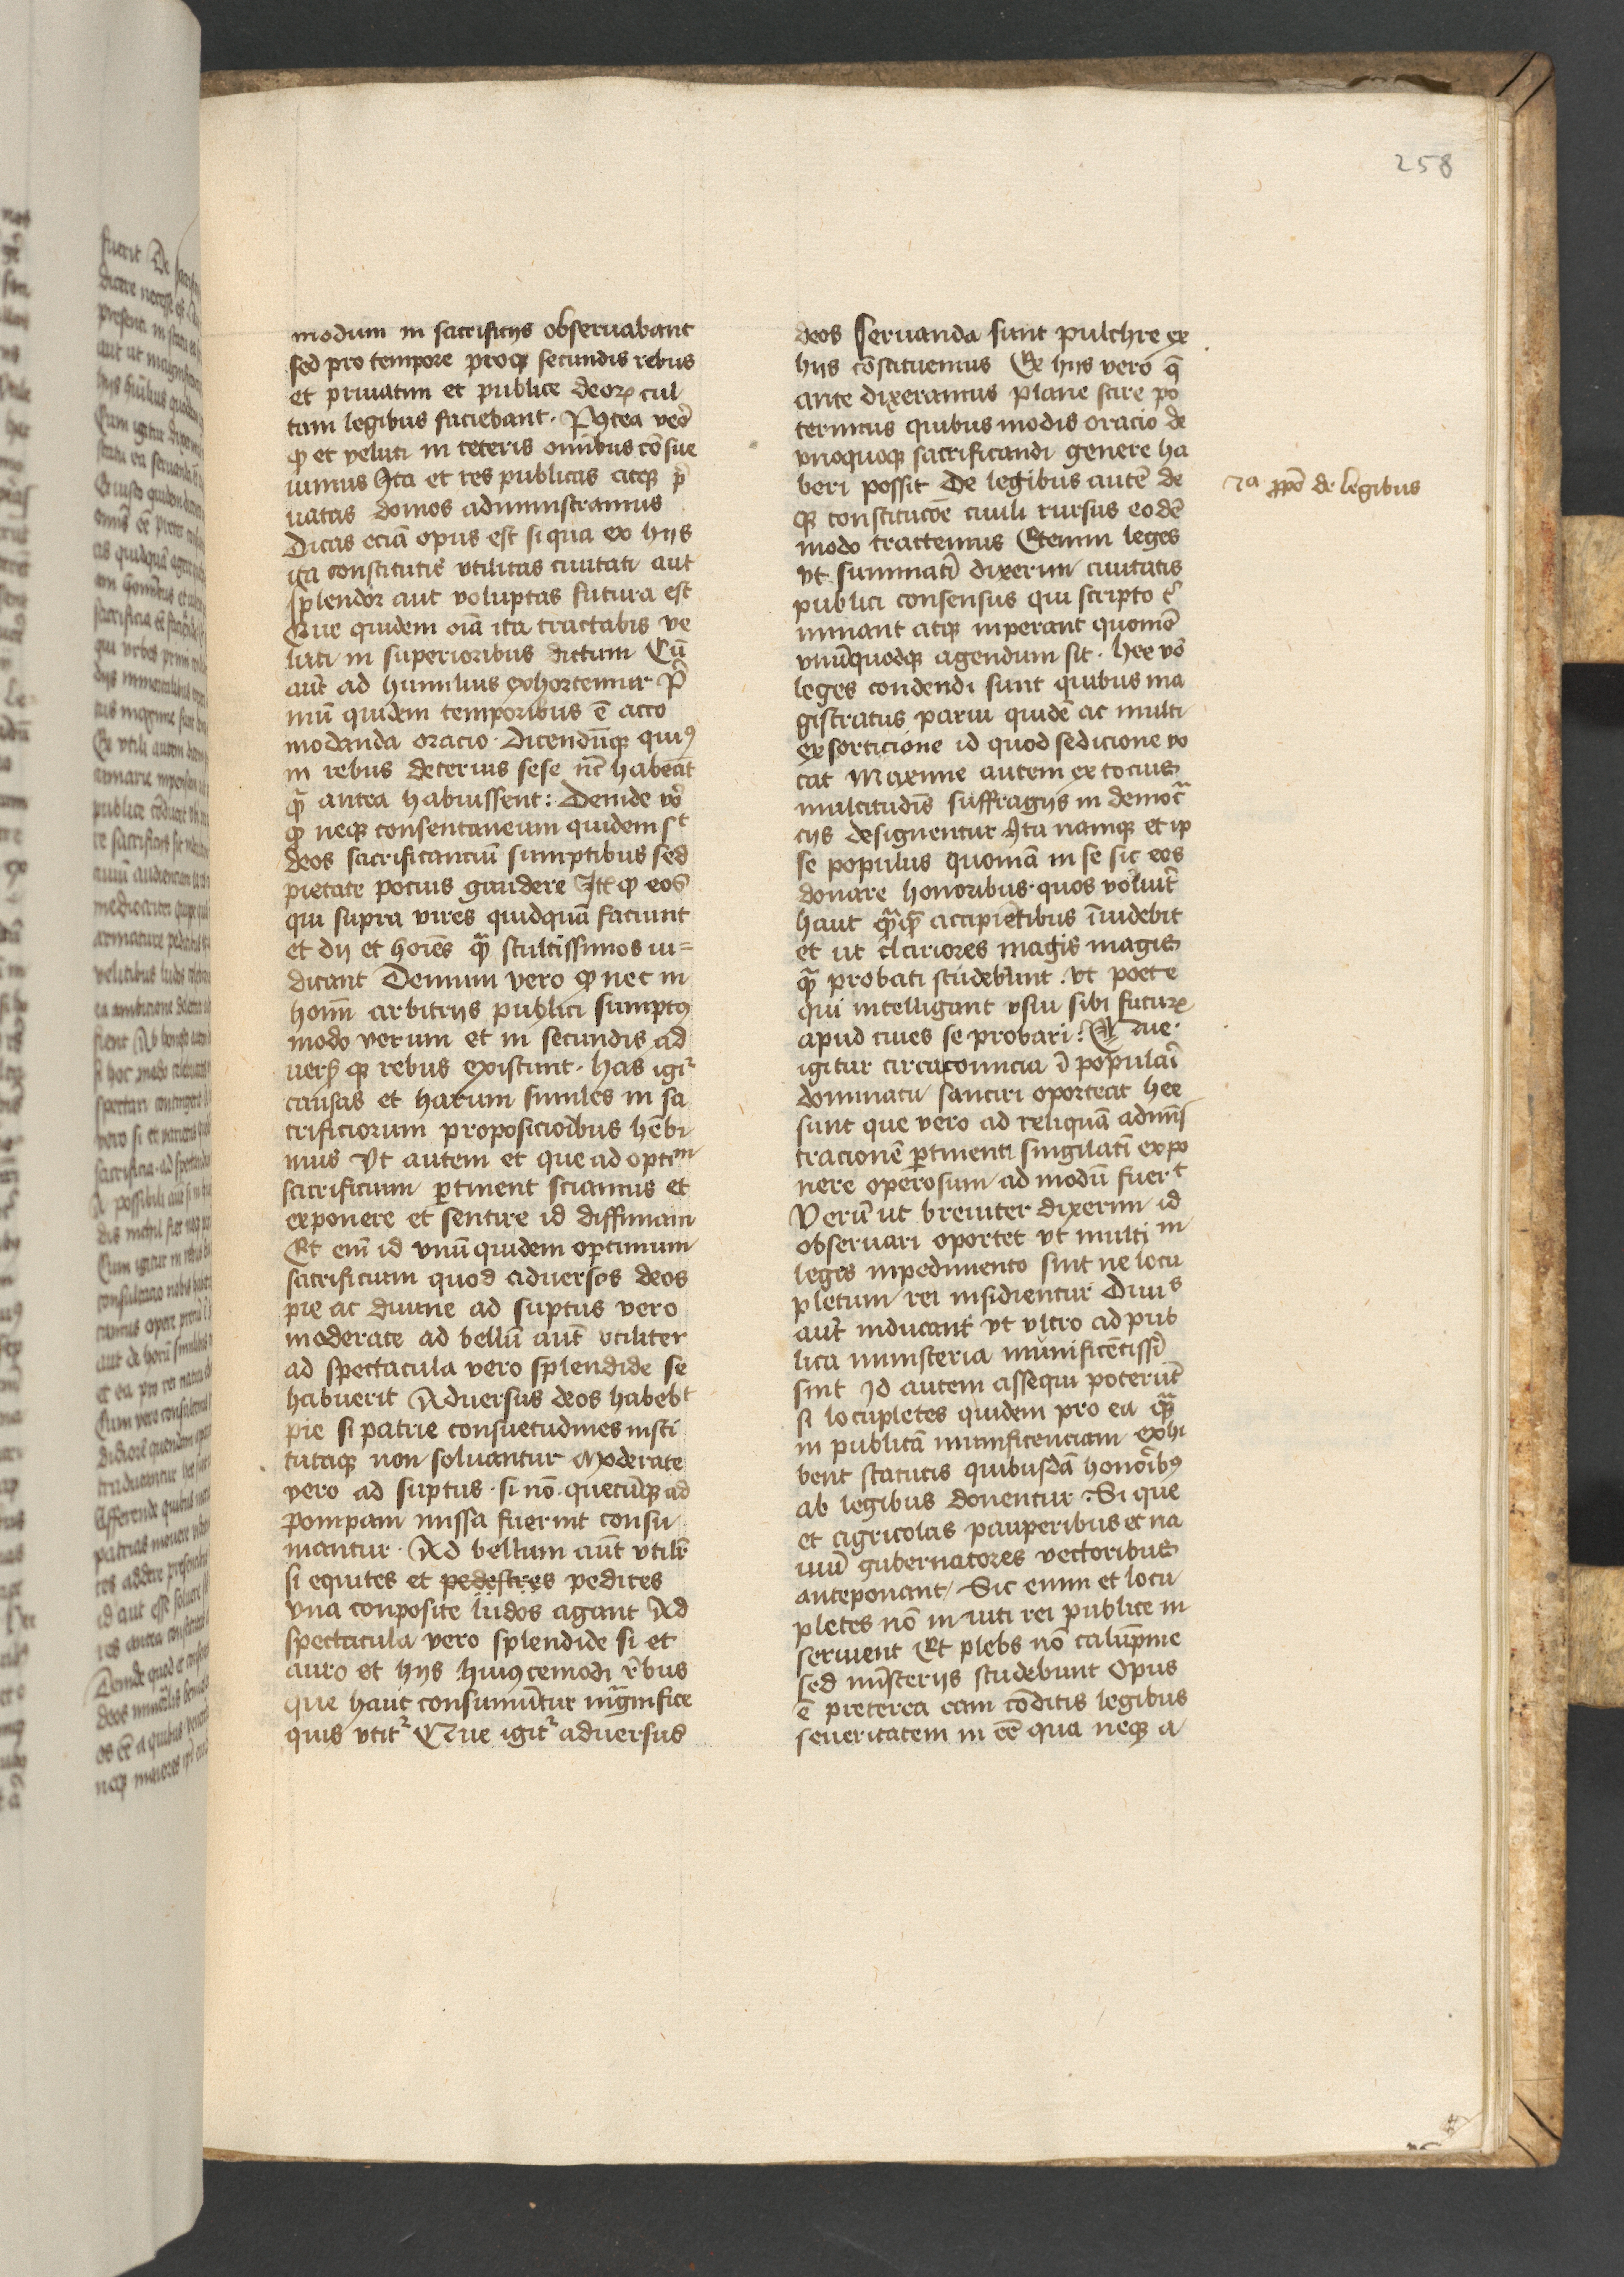 258
modum in sacrificijs obseruabant
sed pro tempore proqꝫ secundis rebus
et priuatim et publice deoꝝ cul
tum legibus faciebant. P9tea vero
ꝙ et veluti in ceteris omībus cōsue
uimus Ita et res publicas atqꝫ p̄
uatas domos administramus
Dicas eciā opus est si qua ex hijs
ita constitutis vtilitas ciuitati aut
splendor aut voluptas futura est
Que quidem oīa ita tractabis ve
luti in superioribus dictum Cū
aūt ad humilius exhortemur P̄
mū quidem temporibus ē acco
modanda oracio. Dicendūqꝫ qui9
in rebus deterius sese nūc habeāt
quā antea habuissent: Deinde vō
ꝙ neqꝫ consentaneum quidem sᵗ
deos sacrificanciū sumptibus sed
pietate pocius gaudere Itē ꝙ eos
qui supra vires quidquā faciunt
et dij et hoīes quā stultissimos iu=
dicant Demum vero ꝙ nec in
hoīm arbitrijs publici sumptꝰ
modo verum et in secundis ad
uersꝭ qꝫ rebus existunt. has igiᵗ
causas et harum similes in sa
crificiorum proposicioībus hēbi
mus Vt autem et que ad optīm
sacrificium ꝑtinent sciamus et
exponere et sentire id diffiniam
Et em̄ id vnū quidem optimum
sacrificium quod aduersos deos
pie ac diuine ad sūptus vero
moderate ad bellū aūt vtiliter
ad spectacula vero splendide se
habuerit Aduersus deos habebᵗ
pie si patrie consuetudines insti
tuteqꝫ non soluantur Moderate
vero ad sūptus. si nō. quecūqꝫ ad
pompam missa fuerint consu
mantur. Ad bellum aūt vtilr̄
si equites et pedestres pedites
vna conposite ludos agant Ad
spectacula vero splendide si et
auro et hijs huiꝰcemodi rēbus
que haut consumūtur magnifice
quis vtitᵘʳ Que igitᵘʳ aduersus
deos seruanda sunt pulchre ex
hijs cōstituemus Ex hijs vero q̄
ante dixeramus plane scire po
terimus quibus modis oracio de
vnoquoqꝫ sacrificandi genere ha
beri possit De legibus autē de
qꝫ constitucōe ciuili rursus eodē
modo tractemus Etenim leges
vt summatī dixerim ciuitatis
publici consensus qui scripto t̄
minant atqꝫ inperant quomō
vnūquodqꝫ agendum sit. hee vō
leges condendi sunt quibus ma
gistratus parui quidē ac multi
ex sorticione id quod sedicione va
cat Maxime autem ex tocius
multitudīs suffragijs in democra
cijs designentur Ita namqꝫ et ip
se populus quoniā in se sic eos
donare honoribus. quos voluit
haut quāqꝫ accipiētibus īuidebit
et ut clariores magis magis
quā probati studebunt. vt poete
qui intelligant vsui sibi futuꝝ
apud ciues se probari: Que
igitur circa conuicia ī populari
dominatu sanciri oporteat hee
sunt que vero ad reliquā admīs
tracionē ꝑtinent singilatī expo
nere operosum admodū fuerᵗ
Verū ut breuiter dixerim id
obseruari oportet vt multi in
leges inpedimento sint ne locu
pletum rei insidientur Diuis
aūt inducant vt vltro ad pub
lica ministeria munificētissī
sint Id autem assequi poterūt
si locupletes quidem pro ea quā
in publicā munificenciam exhi
bent statutis quibusdā honorībꝰ
ab legibus donentur. Si que
et agricolas pauperibus et na
uiū gubernatores vectoribus
anteponant. Sic enim et locu
pletes nō inuiti rei publice in
seruient Et plebs nō calūpnie
sed mīsterijs studebunt Opus
ē preterea eam cōditis legibus
seueritatem in eē qua neqꝫ a
2a ꝓpō de legibus